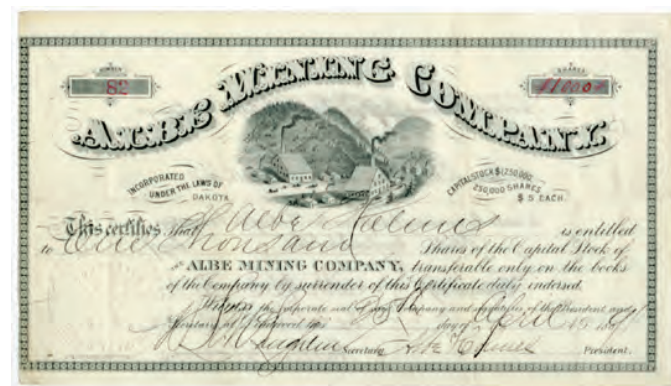 NUMBER
82
SHARES
1000
ALBE MINING COMPANY.
INCORPORATED
UNDER THE LAWS OF
DAKOTA
CAPITAL STOCK $1,250,000.
250,000 SHARES
$5 EACH.
This certifies that Albe Holmes is entitled
to One Thousand Shares of the Capital Stock of
the ALBE MINING COMPANY, transferable only on the books
of the Company by surrender of this Certificate duly endorsed.
Witness the corporate seal of said Company and signatures of the President and
Secretary at this 25th day of April 18
Secretary Albe Holmes President.